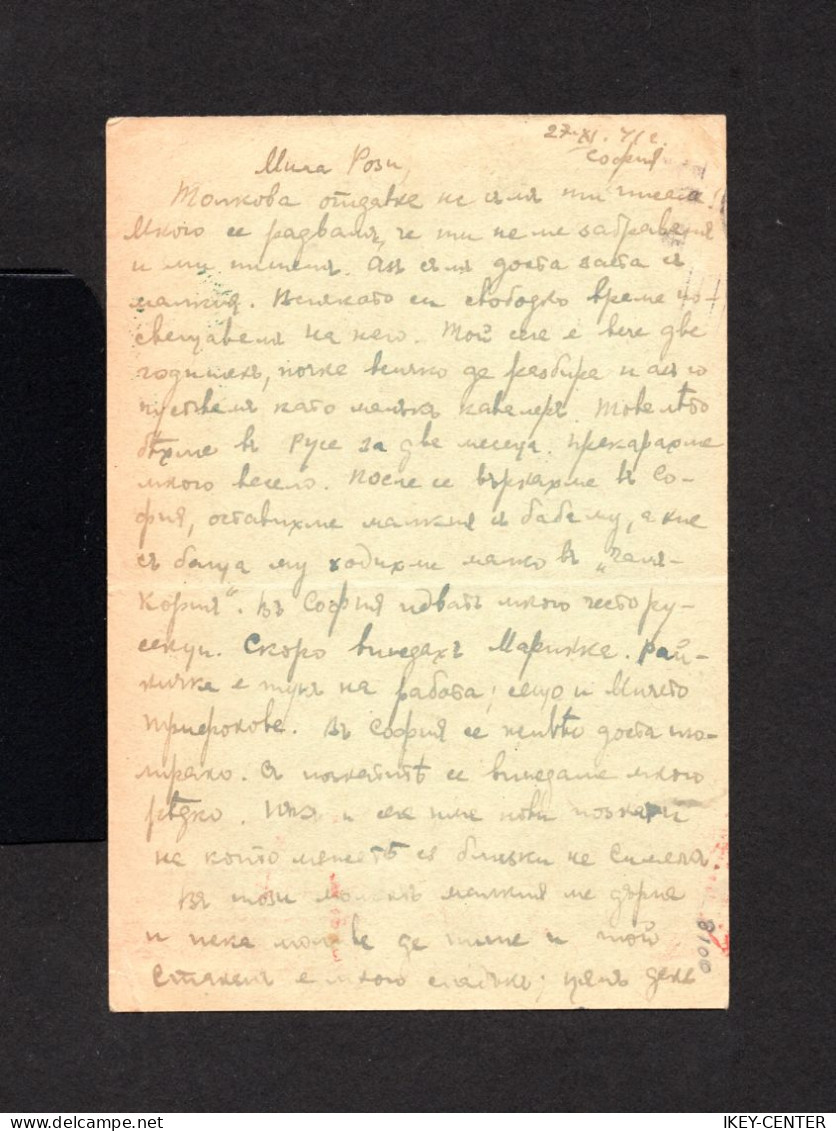 27.XI.
София
Мила Рози,
Толкова отдавна не съмъ ти писала!
Много се радвамъ, че ти не ме забравяшъ
и ми пишешъ. Азъ съмъ доста заета съ
малкия. Всичкото си свободно време по-
свещавамъ на него. Той сега е вече две
годишенъ, почна всичко да разбира и азъ го
малъкъ кавалеръ. Това лѣто
бѣхме въ Русе за две месеца. Прекарахме
много весело. После се върнахме въ Со-
фия, оставихме малкия съ баба му, а ние
съ баща му ходихме малко въ „Чамъ-
Кория“. Въ София идватъ много често ру-
сенци. Скоро виждахъ Марийка. Рай-
ничка е тукъ на работа; също и Мичето
Въ София се живѣе доста
Съ познатитѣ се виждаме много
рѣдко. и сега име нови познати
на които мѫжетѣ сѫ близки на Симеонъ.
Въ този моментъ малкия ме дърпа
и иска молива да пише и той
е много сладъкъ; цялъ день
8100
IKEY-CENTER